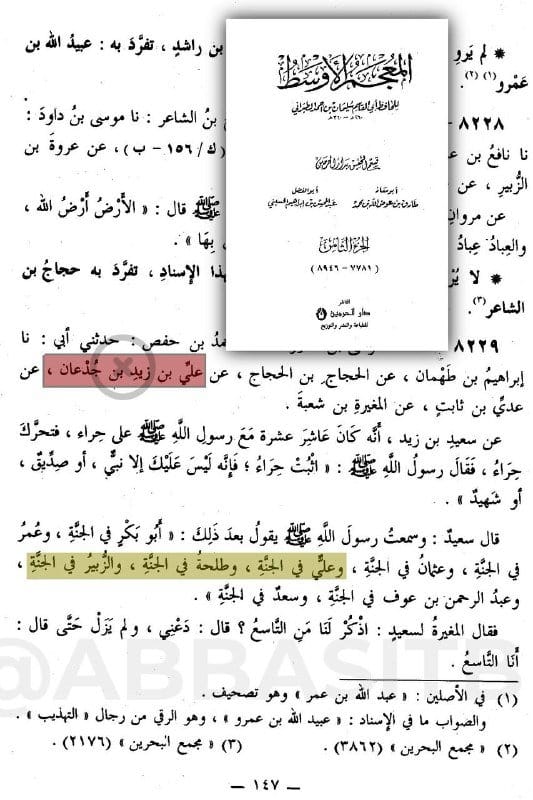 * لم يَروِ
بن راشدٍ ، تفرَّدَ به : عبيدُ الله بن
عَمْرو (١) (٢) .
٨٢٢٨ -
بنُ الشاعر : نا موسى بن داودَ :
نا نافعُ بن
( ك / ١٥٦ - ب ) ، عن عروةَ بن
الزُّبير ، عن
عن مروان
ﷺ قال : « الأَرْضُ أَرْضُ الله ،
والعِبادُ عِبادُ
بِهَا » .
* لا يُرْ
هذا الإسنادِ ، تفرَّدَ به حجاجُ بن
الشاعر (٣) .
المُعْجَمُ الأَوْسَطُ
للحافظ أبي القاسم سليمان بن أحمد الطبراني
٢٦٠ هـ - ٣٦٠ هـ
قسم التحقيق بدار الحرمين
أبو معاذ
أبو الفضل
طارق بن عوض الله بن محمد
عبد المحسن بن إبراهيم الحسيني
الجزء الثامن
( ٧٧٨١ - ٨٩٤٦ )
الناشر
دار الحرمين
للطباعة والنشر والتوزيع
٨٢٢٩
بن حفص : حدثني أبي : نا
إبراهيمُ بن طَهْمان ، عن الحجاجِ بن الحجاج ، عن عليِّ بن زيدِ بن جُدْعان ، عن
عديِّ بن ثابتٍ ، عن المغيرةِ بن شعبةَ .
عن سعيدِ بن زيد ، أَنَّه كَانَ عَاشِرَ عشرة مَعَ رسولِ اللَّهِ ﷺ على حِراء ، فتحرَّكَ
حِرَاءُ ، فَقَالَ رسولُ اللَّهِ ﷺ : « اثْبُتْ حِرَاءُ ؛ فَإِنَّه لَيْسَ عَلَيْكَ إلا نبيٌّ ، أو صدِّيقٌ ،
أو شهيدٌ » .
قال سعيدٌ : وسمعتُ رسولَ اللَّهِ ﷺ يقولُ بعدَ ذَلِكَ : « أَبُو بَكْرٍ في الجنَّةِ ، وعُمرُ
في الجنَّةِ ، وعثمانُ في الجنَّةِ ، وعليٌّ في الجنَّةِ ، وطلحةُ في الجنَّةِ ، والزُّبيرُ في الجنَّةِ ،
وعبدُ الرحمنِ بن عوف في الجنَّةِ ، وسعدٌ في الجنَّةِ » .
فقال المغيرةُ لسعيدٍ : اذكُرْ لَنَا مَنِ التَّاسعُ ؟ قال : دَعْنِي ، ولم يَزَلْ حَتَّى قال :
أَنَا التَّاسعُ .
@ABBASITB
(١) في الأصلين : « عبد الله بن عمر » وهو تصحيف .
والصواب ما في الإسناد : « عبيد الله بن عمرو » ، وهو الرقي من رجال « التهذيب » .
(٢) « مجمع البحرين » (٣٨٦٢) . (٣) « مجمع البحرين » (٢١٧٦) .
— ١٤٧ —